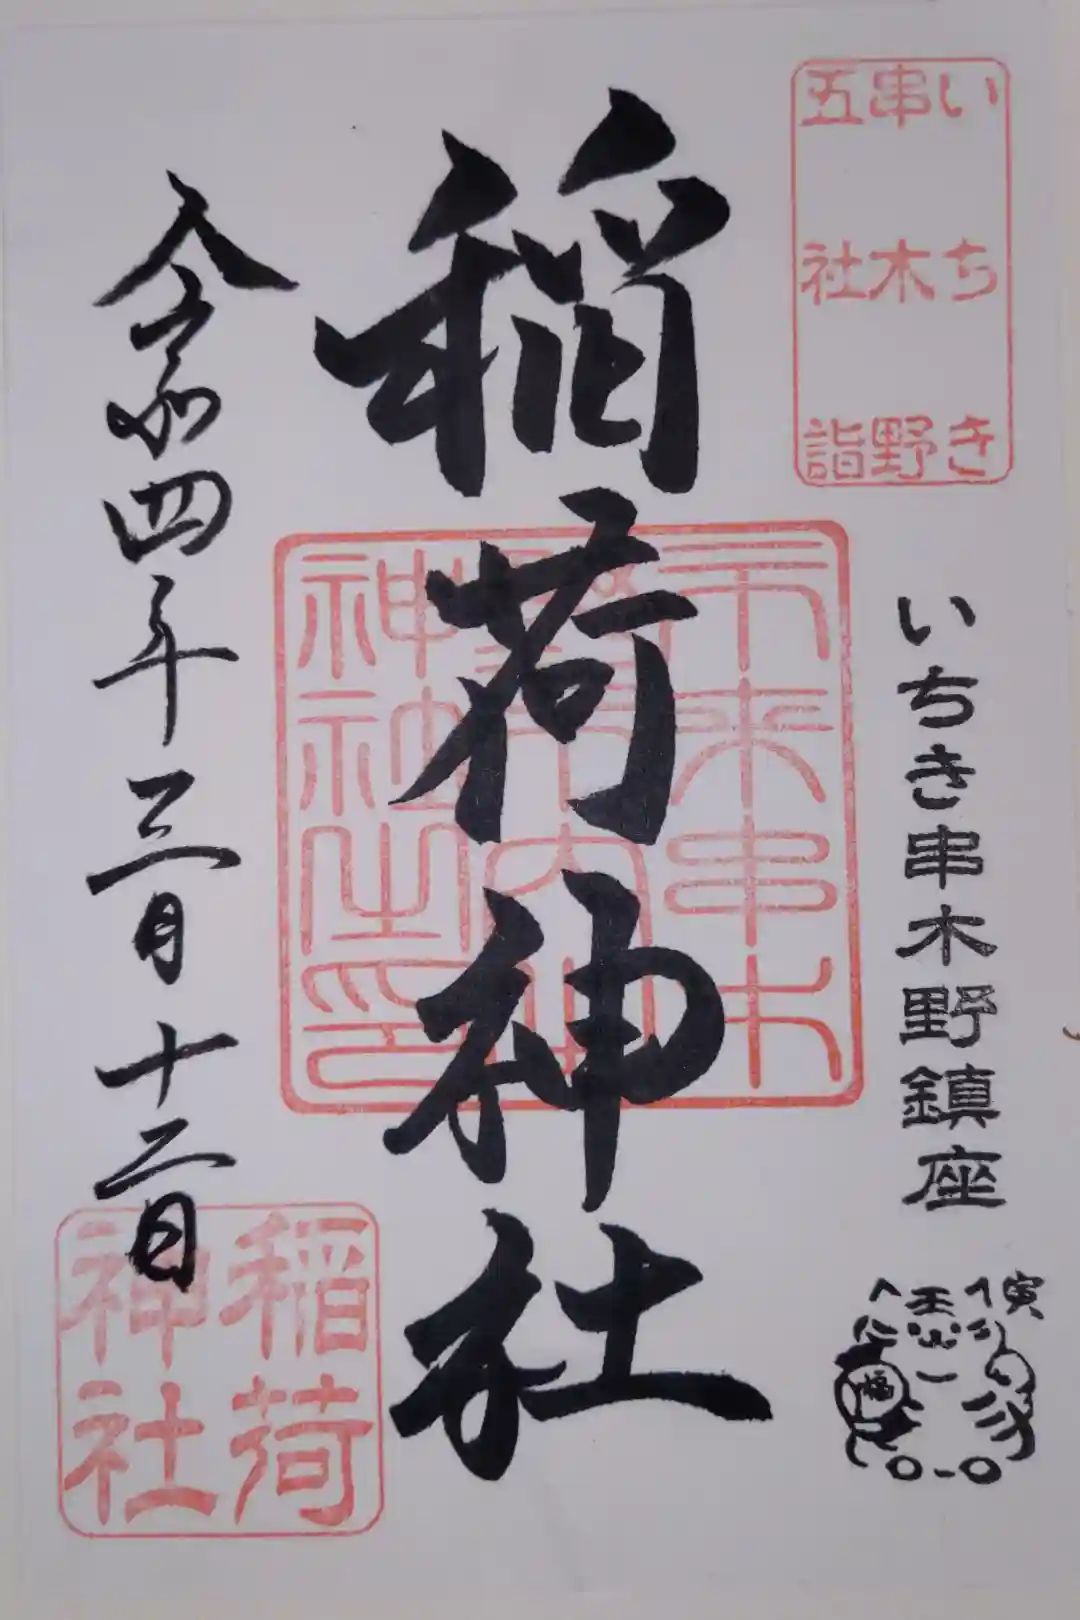 いちき
串木野
五社詣
いちき串木野鎮座
寅
福
稲荷神社
神社之印
令和四年三月十二日
稲荷
神社